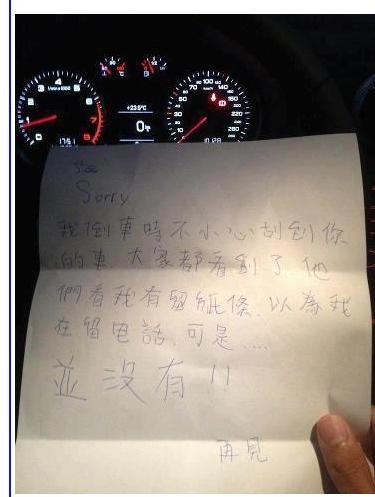 +23.5°C
0
Sorry
我倒車時不小心刮到你
的車 大家都看到了.他
們看我有留紙條.以為我
在留电話.可是.....
並没有!!
再見